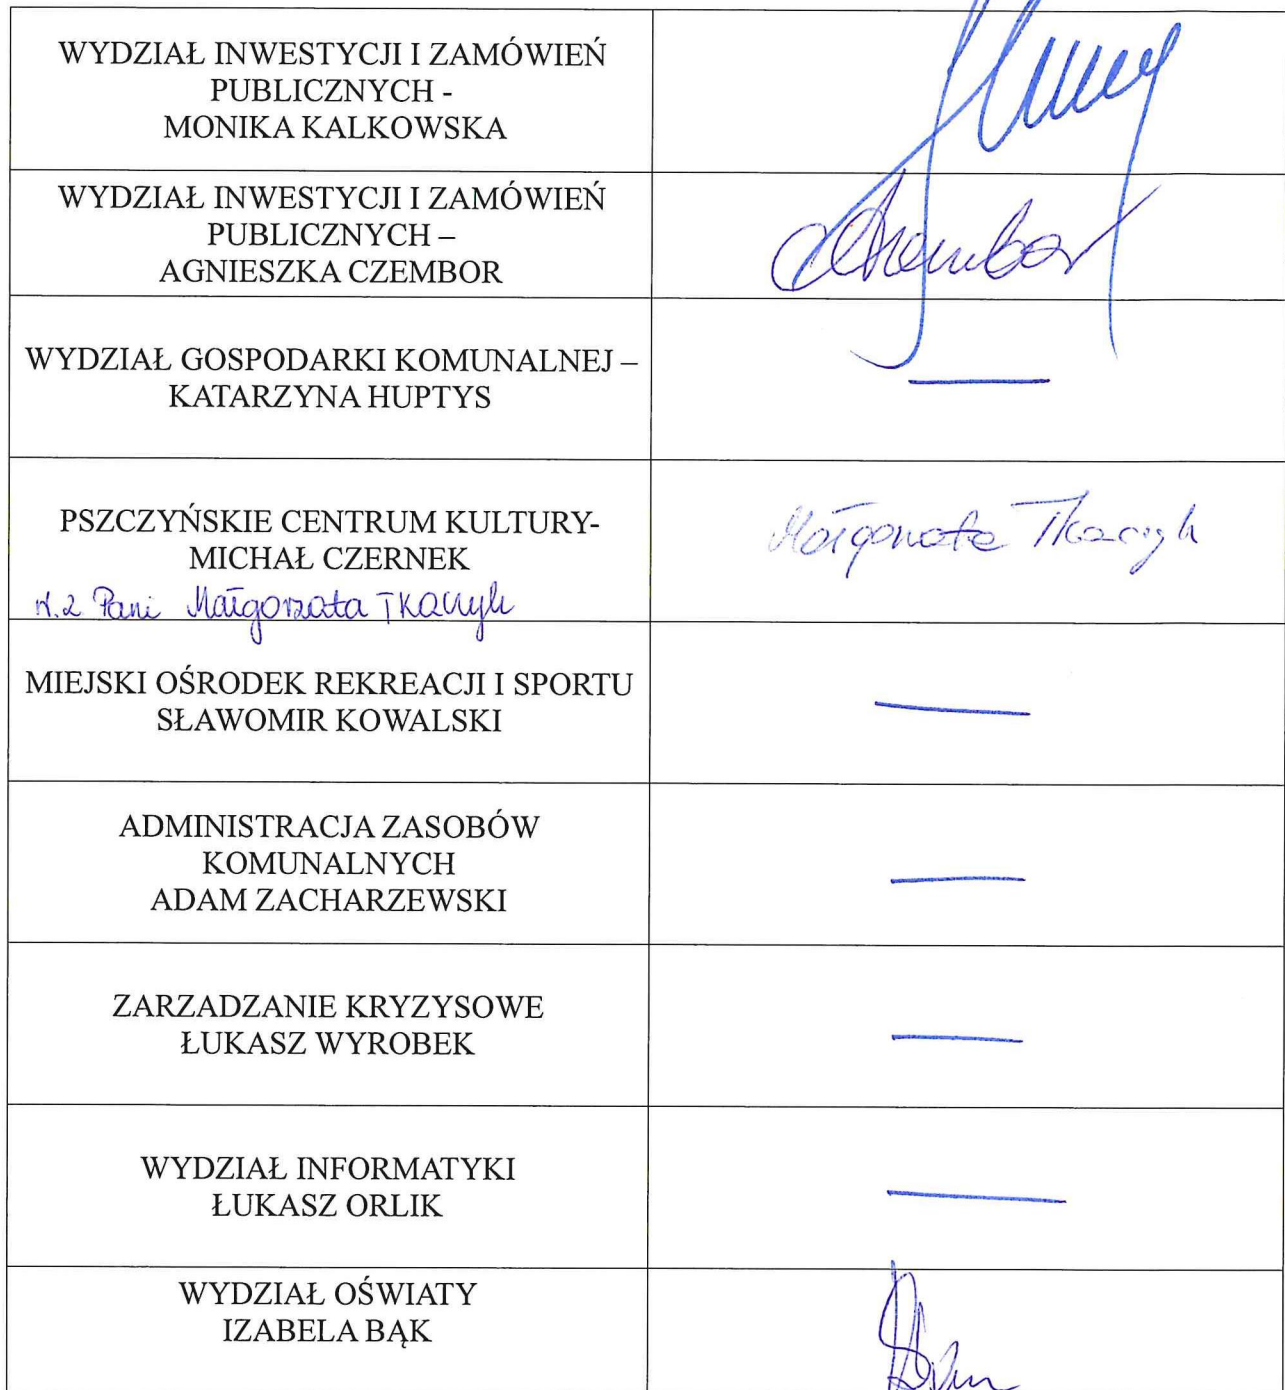 WYDZIAŁ INWESTYCJI I ZAMÓWIEŃ
PUBLICZNYCH -
MONIKA KALKOWSKA
WYDZIAŁ INWESTYCJI I ZAMÓWIEŃ
PUBLICZNYCH –
AGNIESZKA CZEMBOR
ACzembor
WYDZIAŁ GOSPODARKI KOMUNALNEJ –
KATARZYNA HUPTYS
—
PSZCZYŃSKIE CENTRUM KULTURY-
MICHAŁ CZERNEK
Pani Małgorzata Tkaczyk
Małgorzata Tkaczyk
MIEJSKI OŚRODEK REKREACJI I SPORTU
SŁAWOMIR KOWALSKI
—
ADMINISTRACJA ZASOBÓW
KOMUNALNYCH
ADAM ZACHARZEWSKI
—
ZARZADZANIE KRYZYSOWE
ŁUKASZ WYROBEK
—
WYDZIAŁ INFORMATYKI
ŁUKASZ ORLIK
—
WYDZIAŁ OŚWIATY
IZABELA BĄK